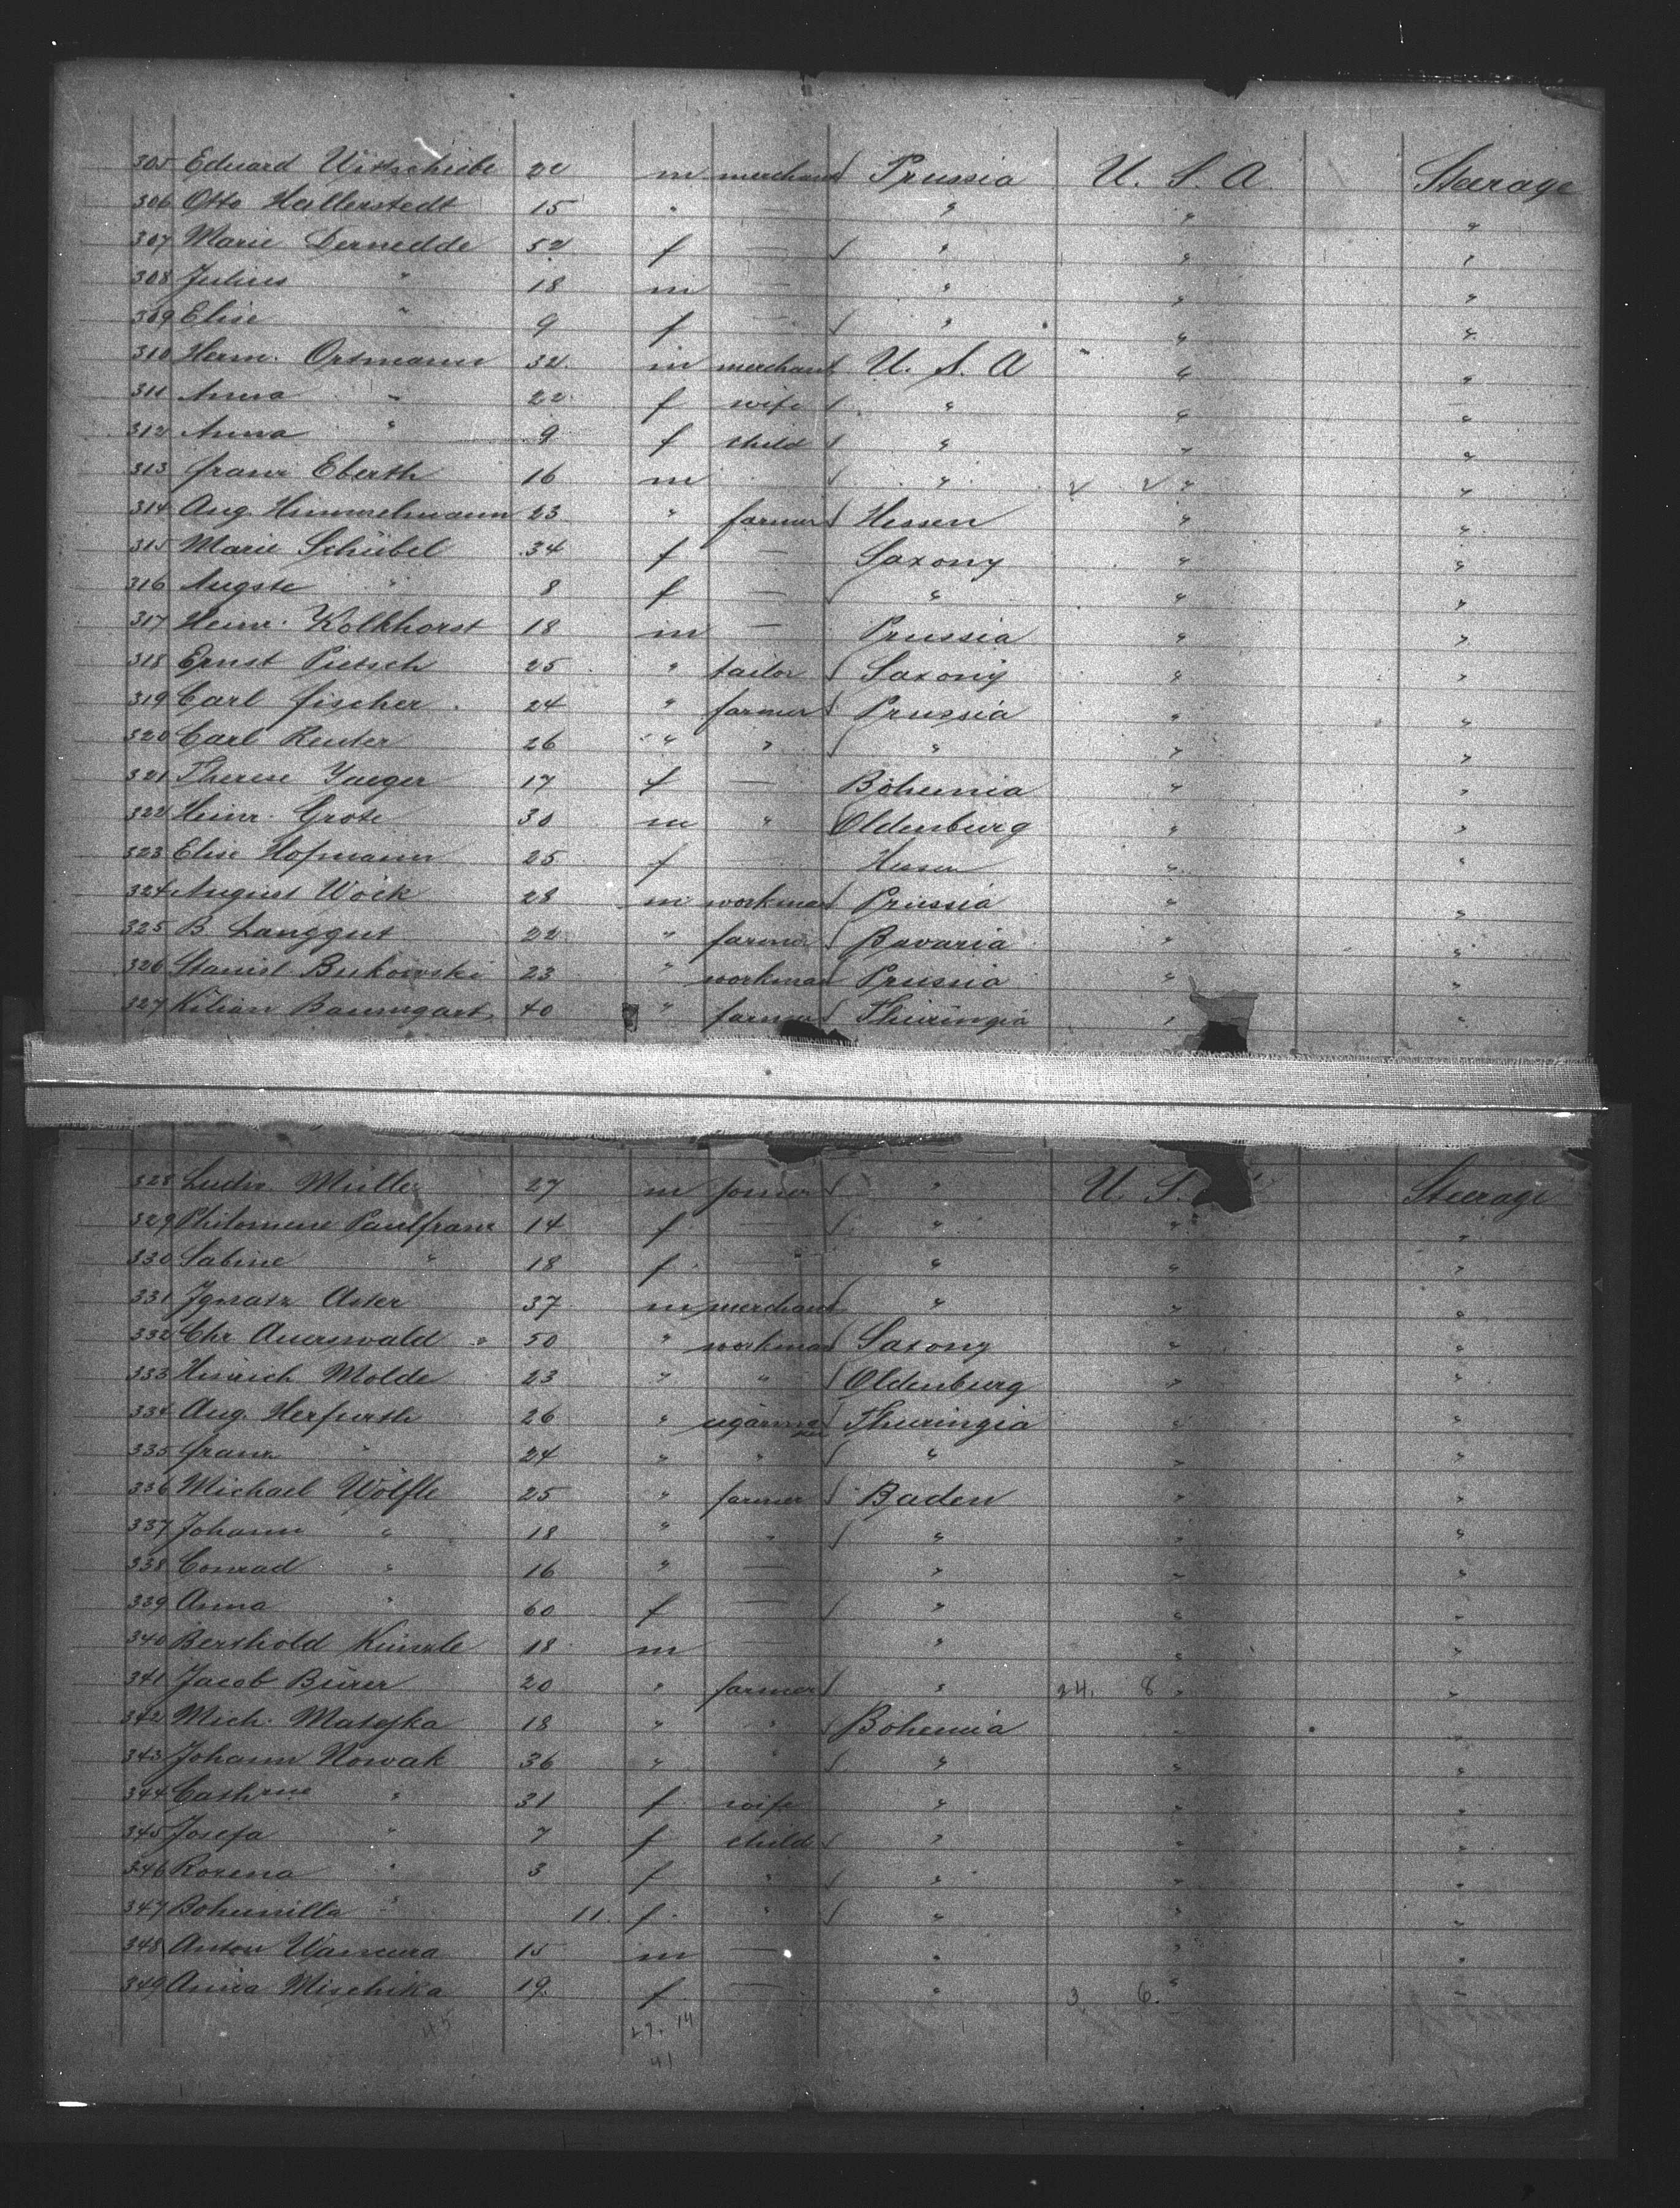 305 Eduard 22 m merchant Prussia U. S. A Steerage
306 Otto Hallerstedt 15 " — " " "
307 Marie Dernedde 52 f — " " "
308 Julius " 18 m — " " "
309 Elise " 9 f — " " "
310 Herm. Ortmann 32 m merchant U. S. A " "
311 Anna " 22 f wife " " "
312 Anna " 9 f child " " "
313 Franz Eberth 16 m " " "
314 Aug. Himmelmann 23 " farmer Hessen " "
315 Marie Schübel 34 f — Saxony " "
316 Augste " 8 f — " " "
317 Heinr. Kolkhorst 18 m — Prussia " "
318 Ernst Pietsch 25 " tailor Saxony " "
319 Carl Fischer 24 " farmer Prussia " "
320 Carl Reuter 26 " " " " "
321 Therese Jaeger 17 f — Bohemia " "
322 Heinr. Grote 30 m " Oldenburg " "
323 Elise Hofmann 25 f Hessen " "
324 August Wock 28 m workman Prussia " "
325 B. Langgut 22 " farmer Bavaria " "
326 Stanisl Bukowski 23 " workman Prussia " "
327 Kilian Baumgart 40 " farmer Thuringia " "
328 Ludw. Müller 27 m farmer " U. S. Steerage
329 Philomene Paulfranz 14 f — " " "
330 Sabine " 18 f — " " "
331 Ignatz Aster 37 m merchant " " "
332 Chr Auerswald 50 " workman Saxony " "
333 Hinrich Molde 23 " " Oldenburg " "
334 Aug. Herfurth 26 " Thuringia " "
335 Franz " 24 " " " " "
336 Michael Wölfle 25 " farmer Baden " "
337 Johann " 18 " " " " "
338 Conrad " 16 " — " " "
339 Anna " 60 f — " " "
340 Berthold Künzle 18 m — " " "
341 Jacob Bürer 20 " farmer " 24. 8 " "
342 Mich. Matejka 18 " " Bohemia " "
343 Johann Nowak 36 " " " " "
344 Cathrine " 31 f wife " " "
345 Josefa " 7 f child " " "
346 Rozena " 3 f " " " "
347 Bohumilla " 11. f " " " "
348 Anton 15 m — " " "
349 Anna Mischika 19. f — " 3. 6. " "
45 27. 14
41